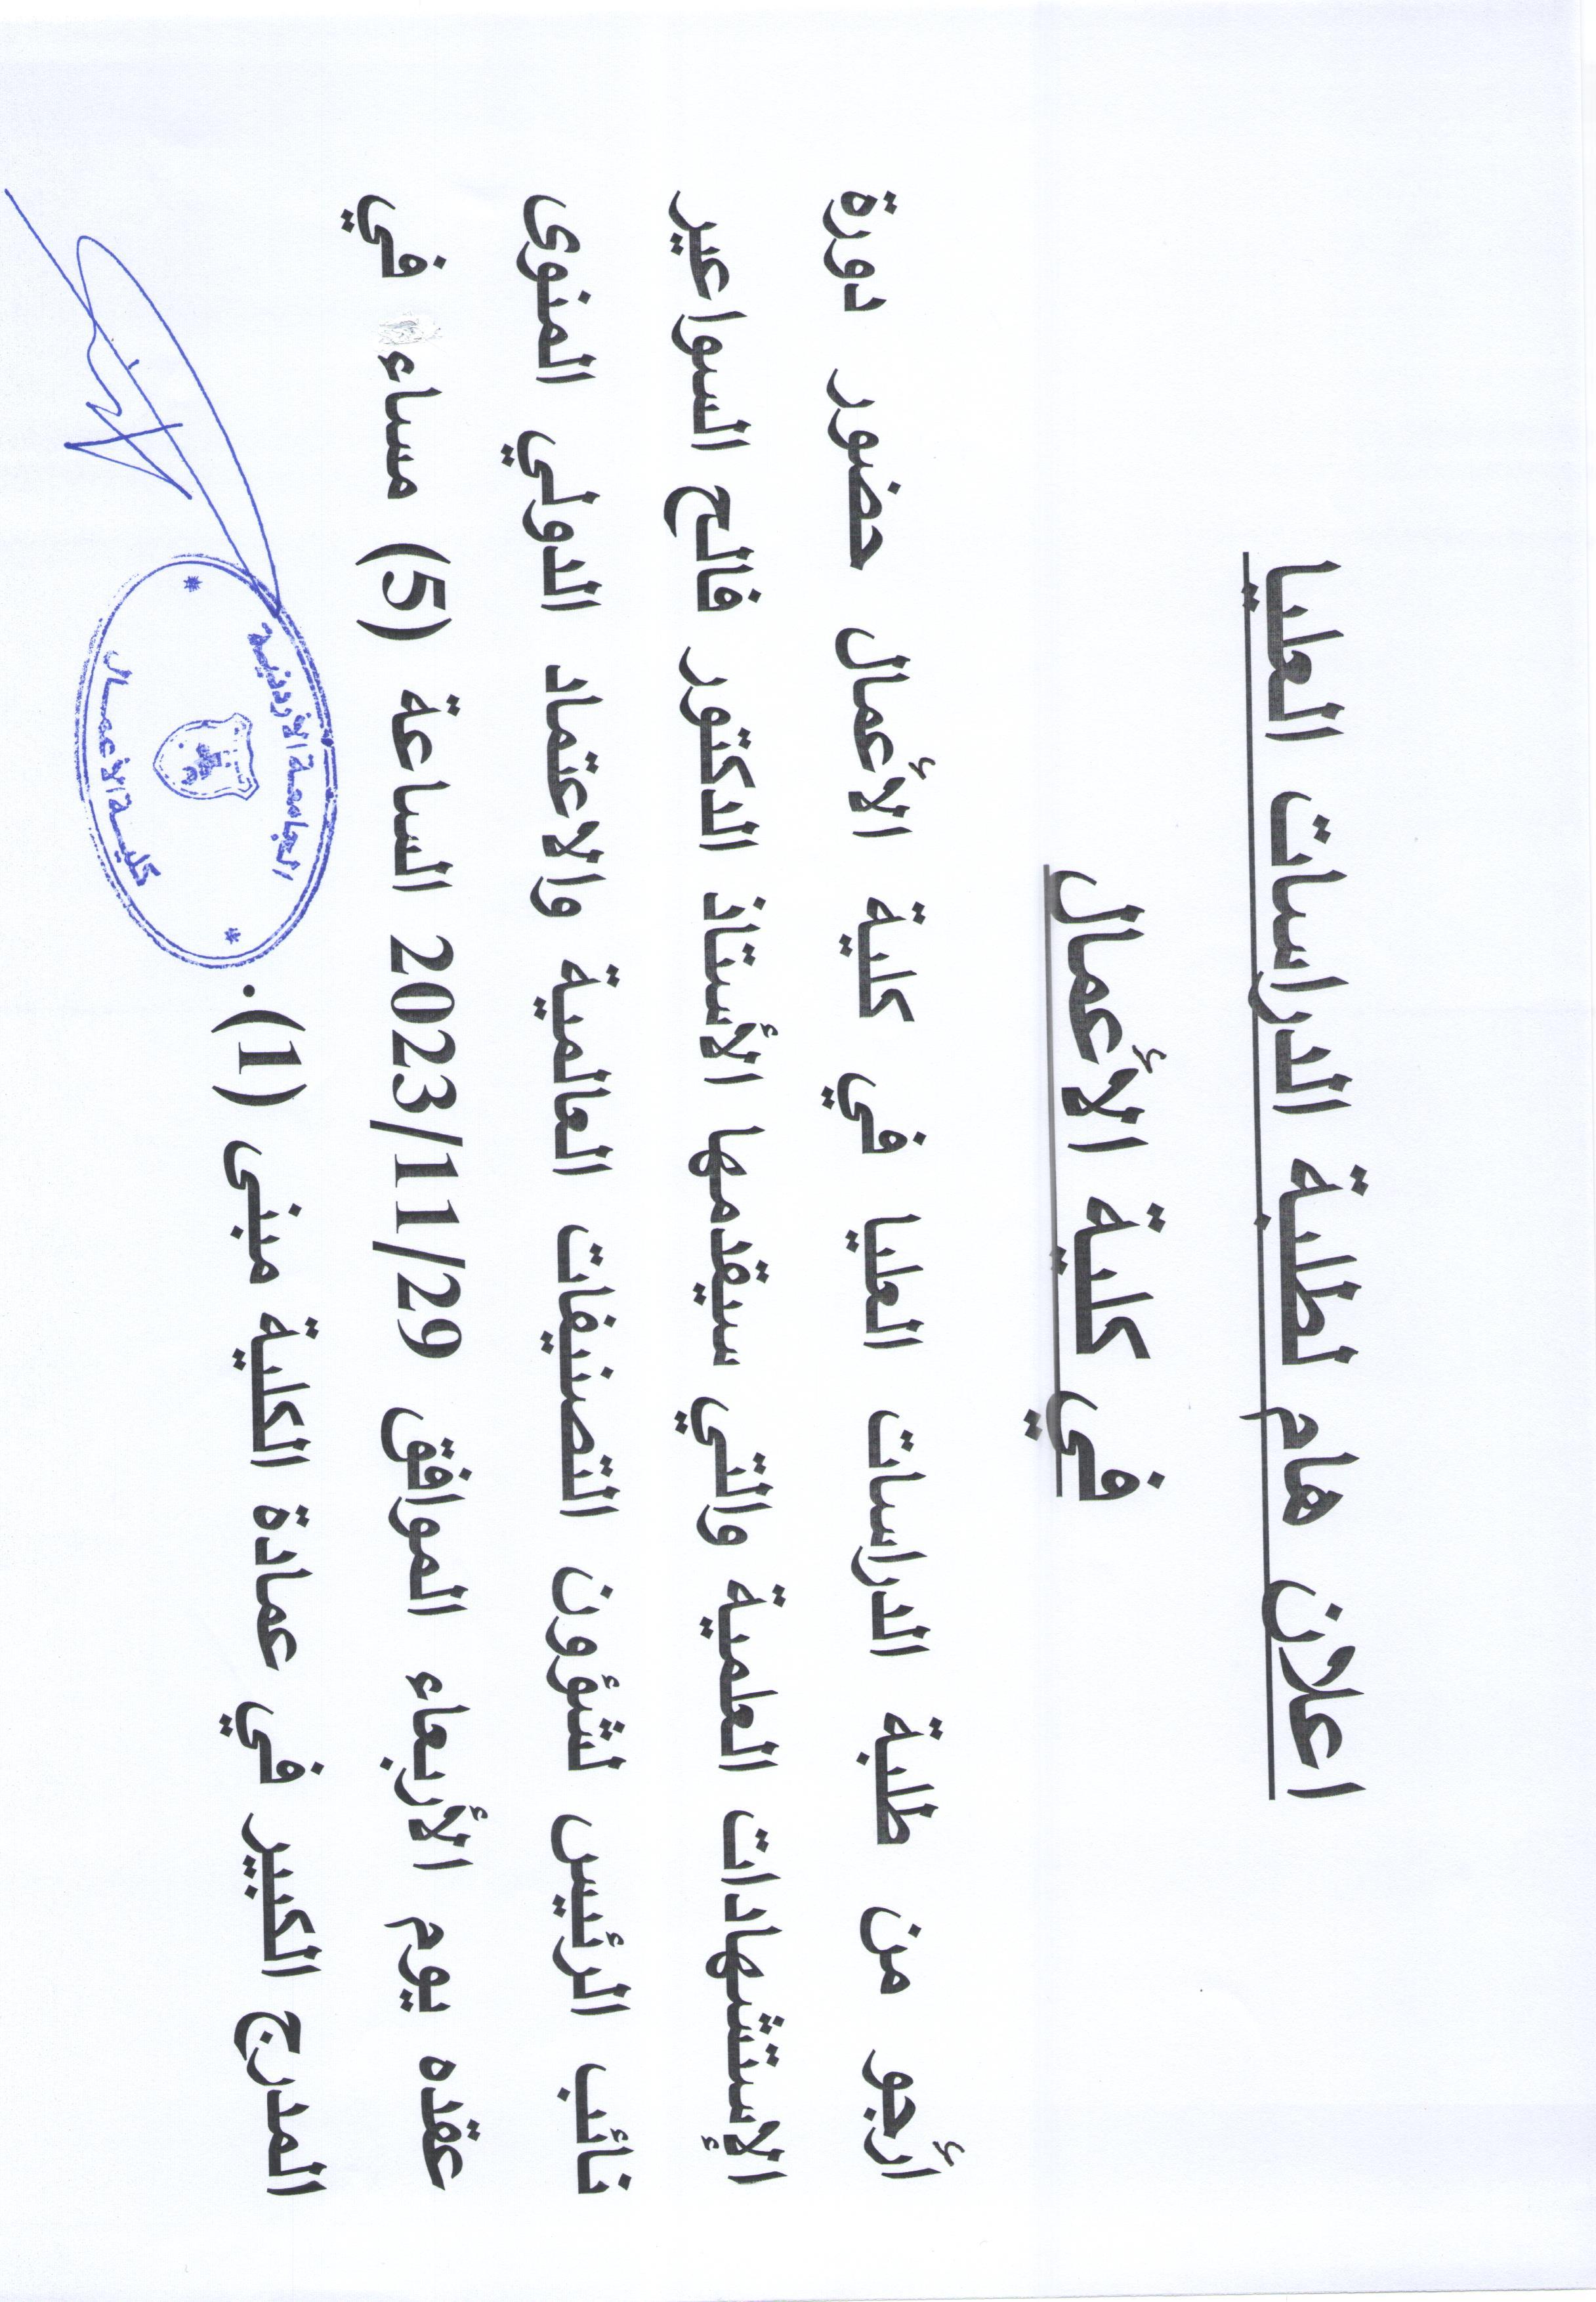 اعلان هام لطلبة الدراسات العليا
في كلية الأعمال
أرجو من طلبة الدراسات العليا في كلية الأعمال حضور دورة
الإستشهادات العلمية والتي سيقدمها الأستاذ الدكتور فالح السواعير
نائب الرئيس لشؤون التصنيفات العالمية والاعتماد الدولي المنوى
عقده يوم الأربعاء الموافق 2023/11/29 الساعة (5) مساء في
المدرج الكبير في عمادة الكلية مبنى (1).
الجامعة الأردنية
كلية الأعمال